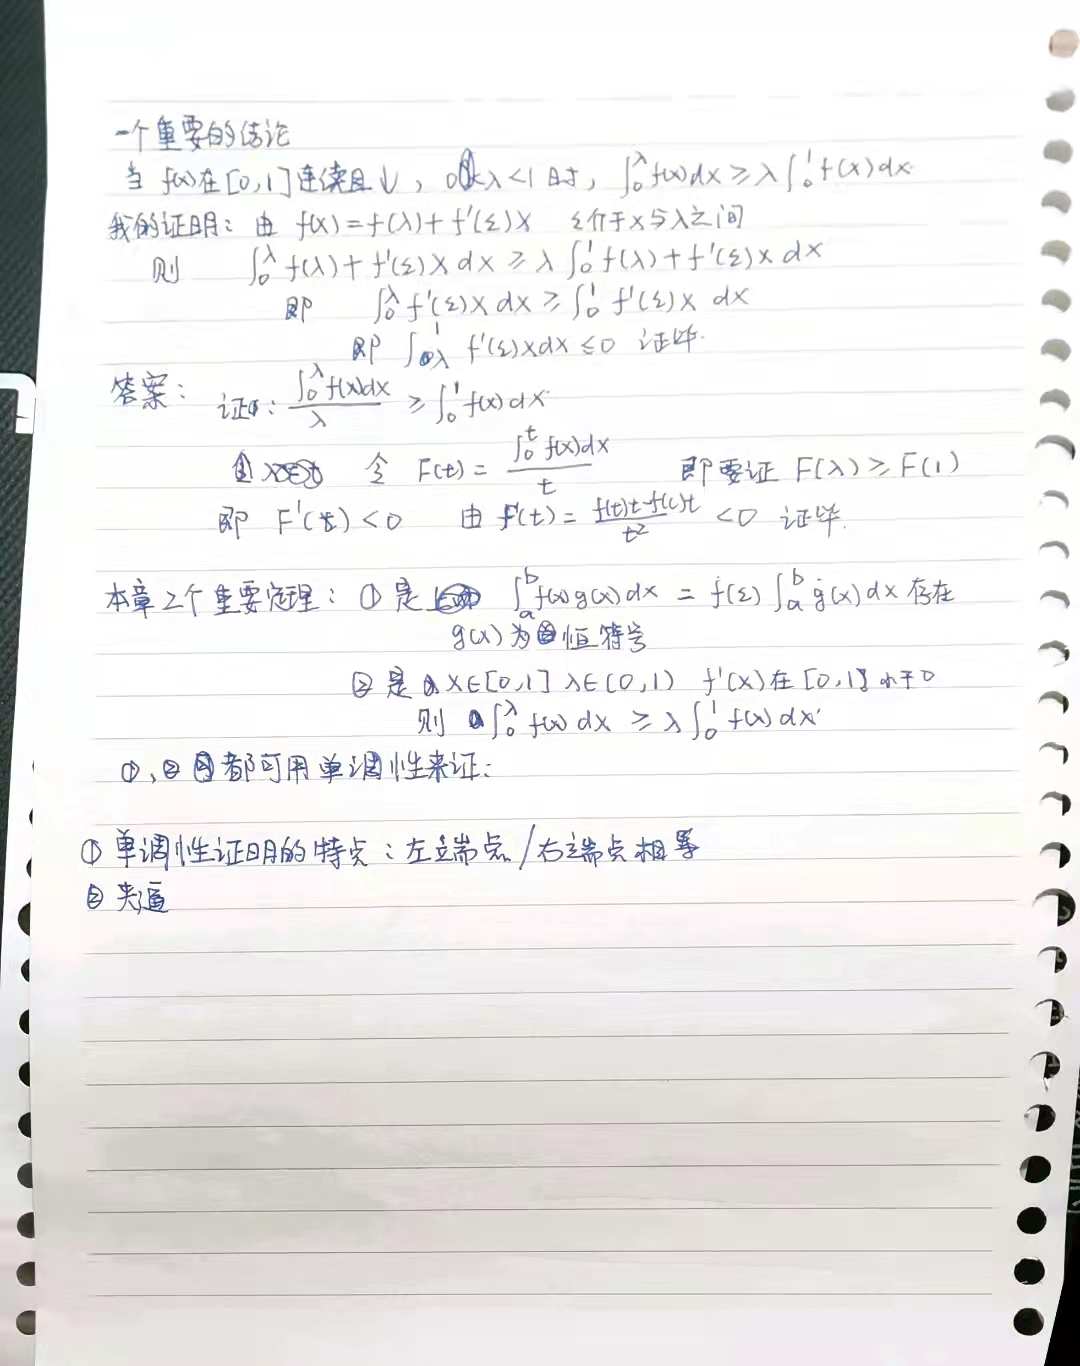 一个重要的结论
当 f(x)在[0,1]连续且↓, 0<λ<1时, ∫₀^λ f(x)dx ≥ λ∫₀¹ f(x)dx
我的证明: 由 f(x)=f(λ)+f'(ξ)x ξ介于x与λ之间
则 ∫₀^λ f(λ)+f'(ξ)x dx ≥ λ∫₀¹ f(λ)+f'(ξ)x dx
即 ∫₀^λ f'(ξ)x dx ≥ ∫₀¹ f'(ξ)x dx
即 ∫_λ^1 f'(ξ)xdx ≤0 证毕.
答案: 证: ∫₀^λ f(x)dx / λ ≥ ∫₀¹ f(x)dx
令 F(t)= ∫₀^t f(x)dx / t 即要证 F(λ)≥F(1)
即 F'(t)<0 由 F'(t)= f(t)t-f(c)t / t² <0 证毕.
本章2个重要定理: ① 是 ∫ₐᵇ f(x)g(x)dx = f(ξ)∫ₐᵇ g(x)dx 存在
g(x)为恒符号
② 是 x∈[0,1] λ∈(0,1) f'(x)在[0,1]小于0
则 ∫₀^λ f(x)dx ≥ λ∫₀¹ f(x)dx
①,② 都可用单调性来证:
① 单调性证明的特点: 左端点/右端点相等
② 夹逼